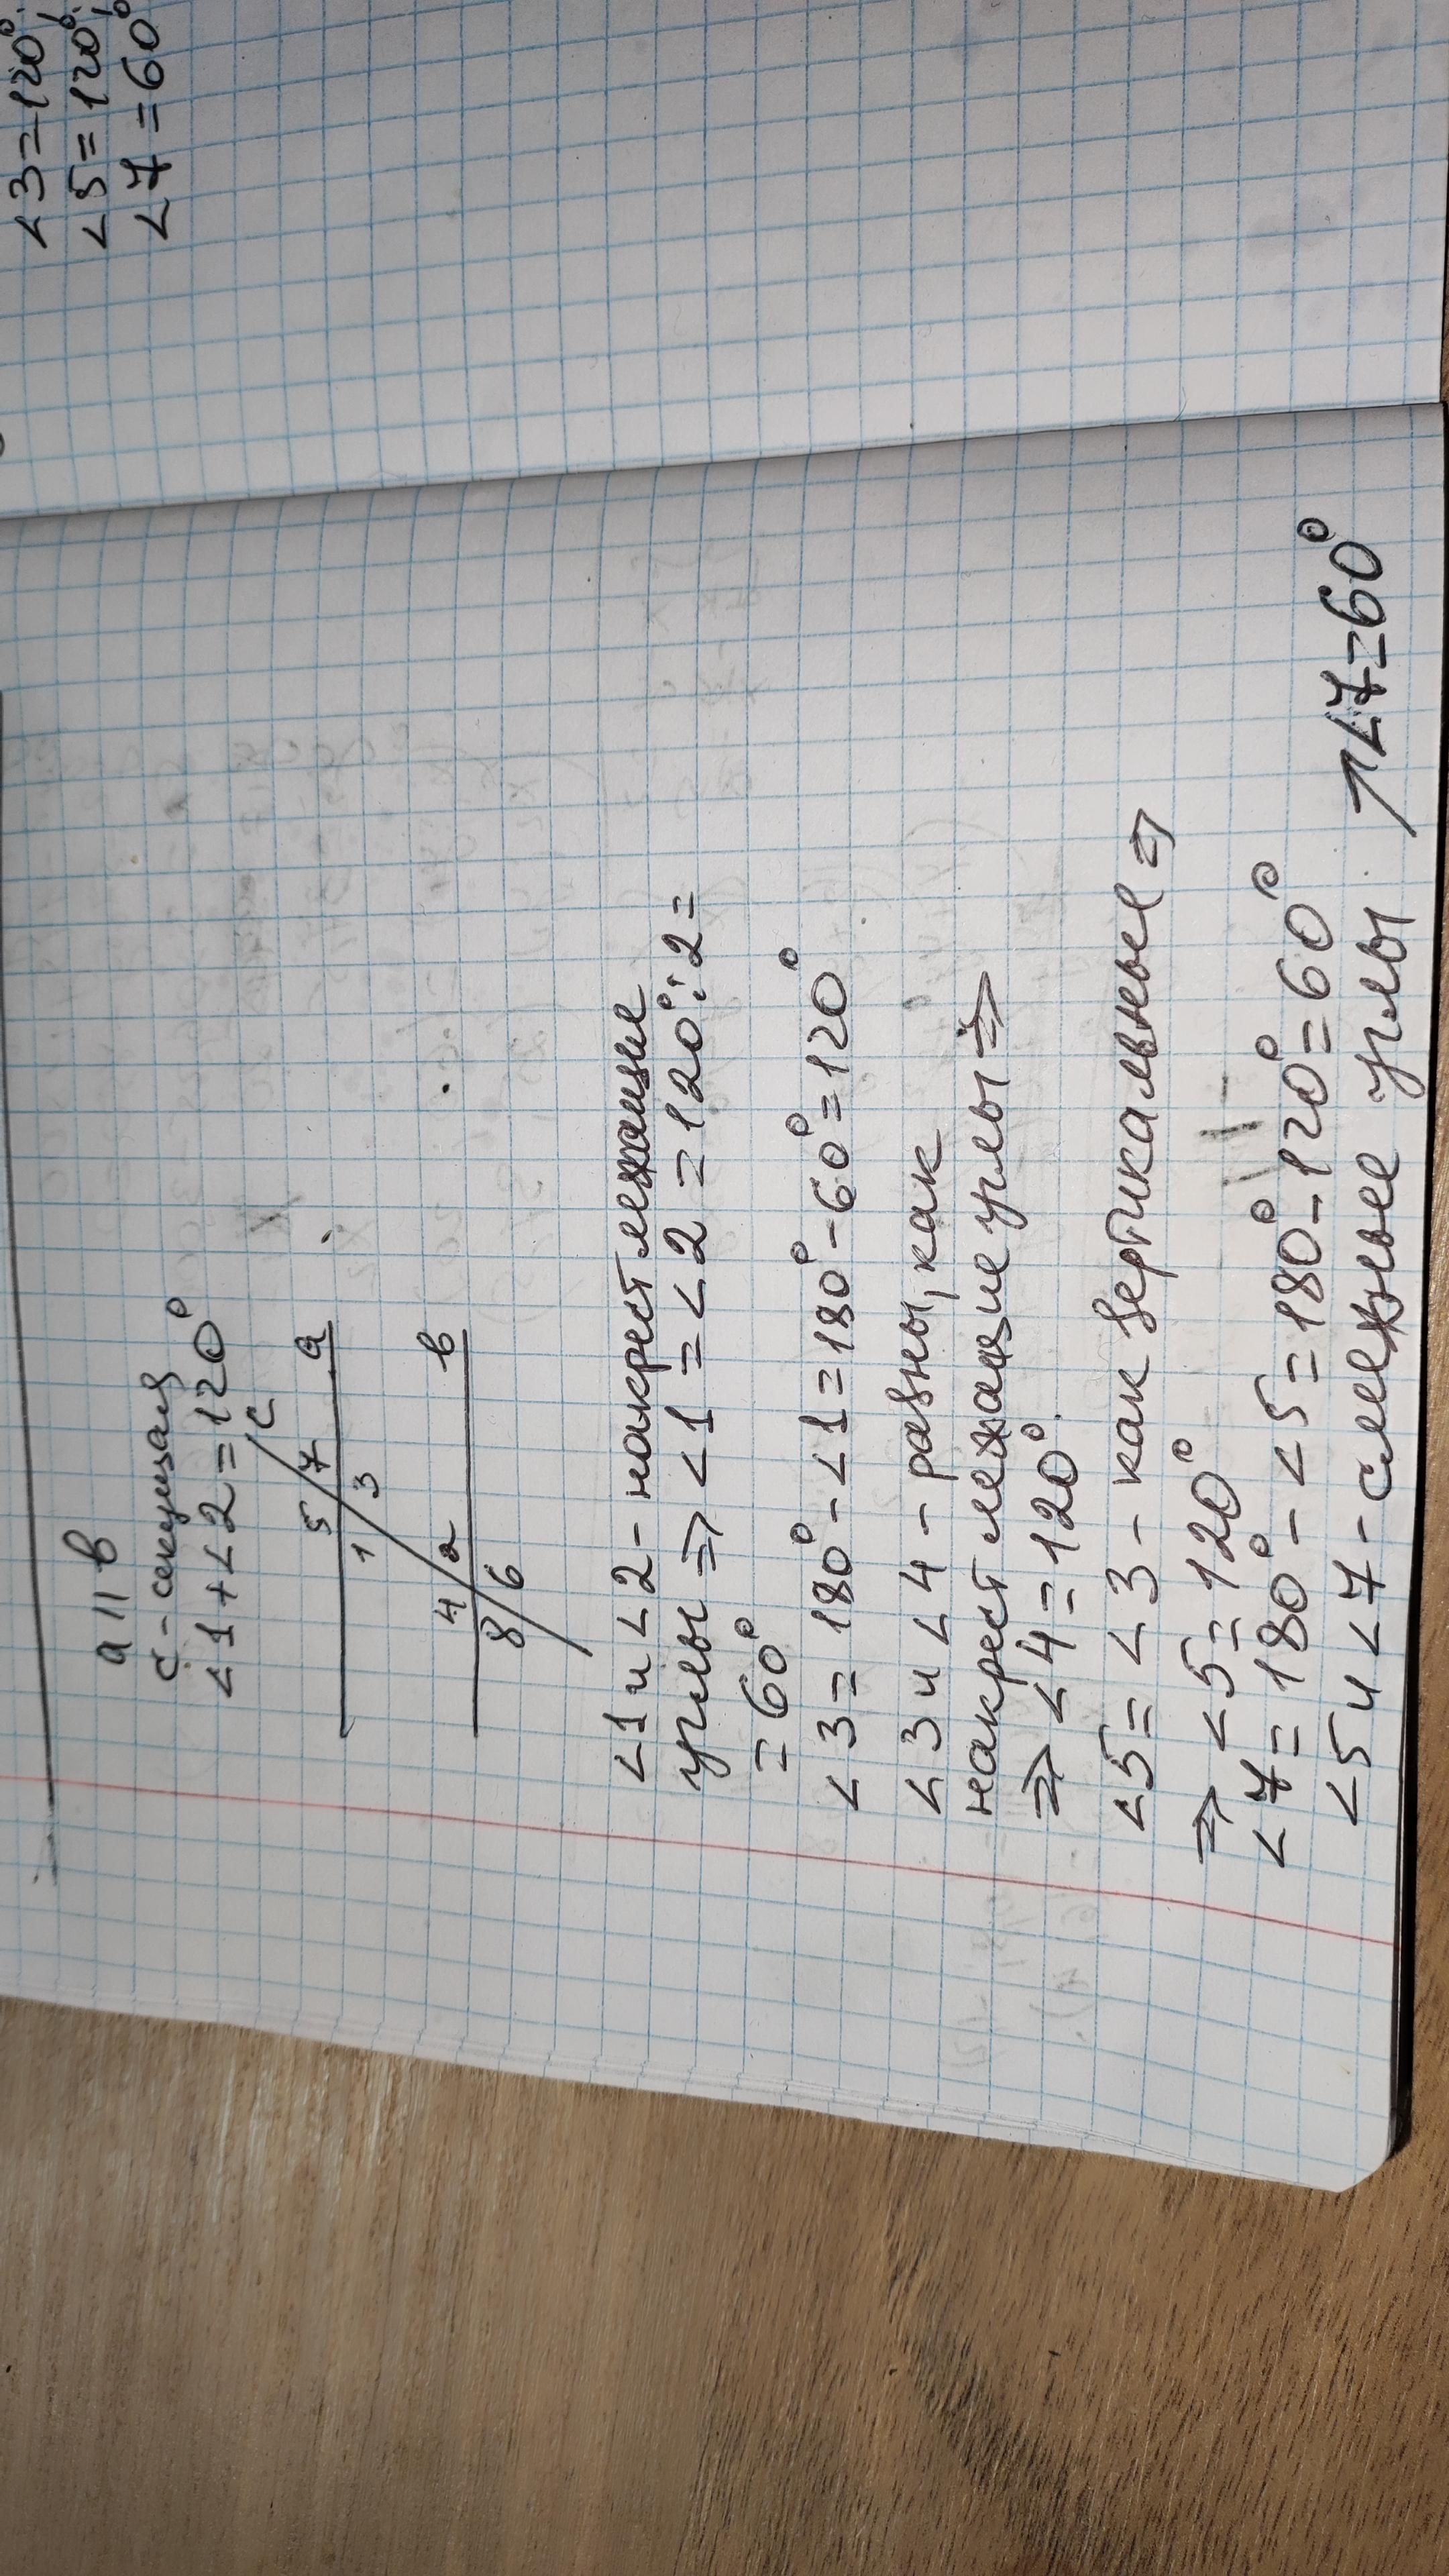 a || в
с - секущая
<1 + <2 = 120°
5 7 с а
1 3
4 2 в
8 6
<1 и <2 - накрест лежащие
углы => <1 = <2 = 120° : 2 =
= 60°
<3 = 180° - <1 = 180° - 60° = 120°
<3 и <4 - равны, как
накрест лежащие углы =>
=> <4 = 120°.
<5 = <3 - как вертикальные =>
=> <5 = 120°
<7 = 180° - <5 = 180° - 120° = 60°
<5 и <7 - смежные углы. ↗ <7 = 60°
<3 = 120°.
<5 = 120°.
<7 = 60°